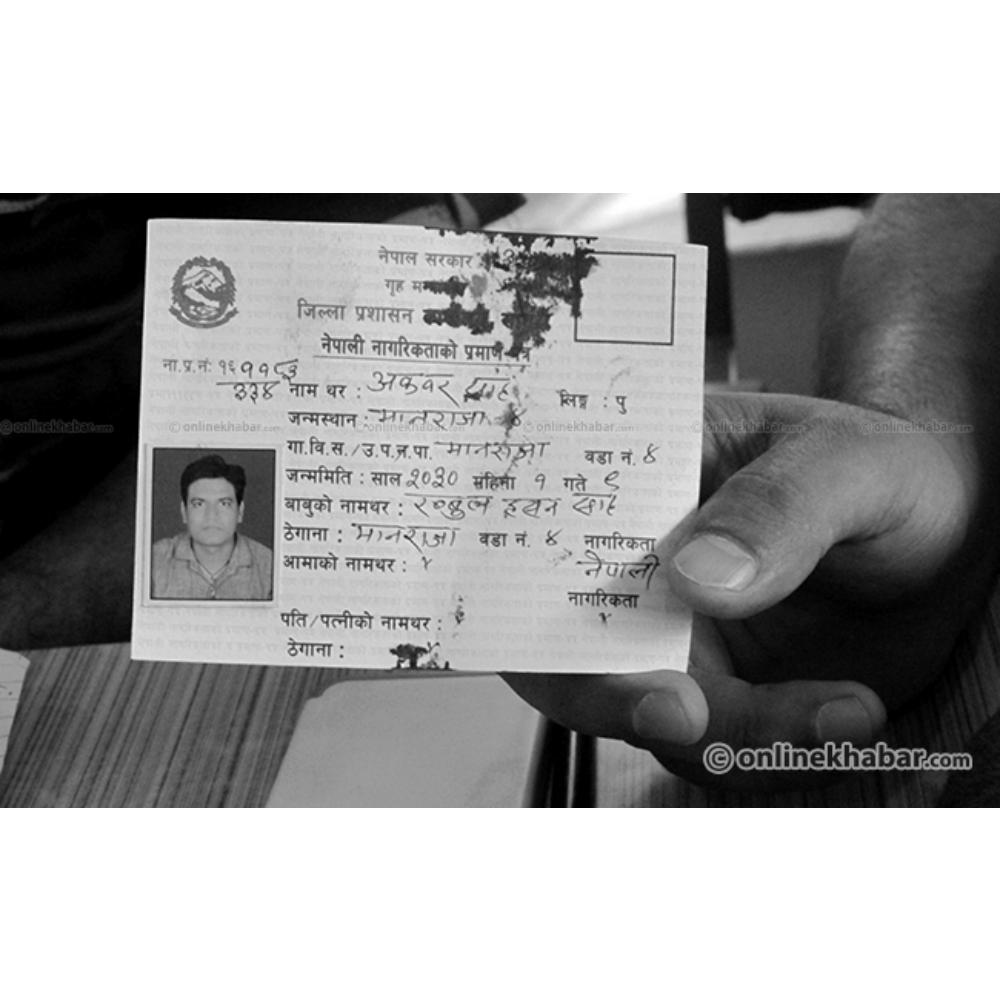 नेपाल सरकार
गृह
जिल्ला प्रशासन
नेपाली नागरिकताको प्रमाण पत्र
ना.प्र.नं: १६११८६
३३४ नाम थर : अकवर लिङ्ग : पु
जन्मस्थान : मानराजा ४
गा.वि.स./उ.प.न.पा. मानराजा वडा नं. ४
जन्ममिति : साल २०३० महिना १ गते ९
बाबुको नामथर :
ठेगाना : मानराजा वडा नं. ४ नागरिकता
आमाको नामथर : x नेपाली
नागरिकता
x
पति/पत्नीको नामथर : x
ठेगाना : x
©onlinekhabar.com
©onlinekhabar.com
©onlinekhabar.com
©onlinekhabar.com
©onlinekhabar.com
©onlinekhabar.com